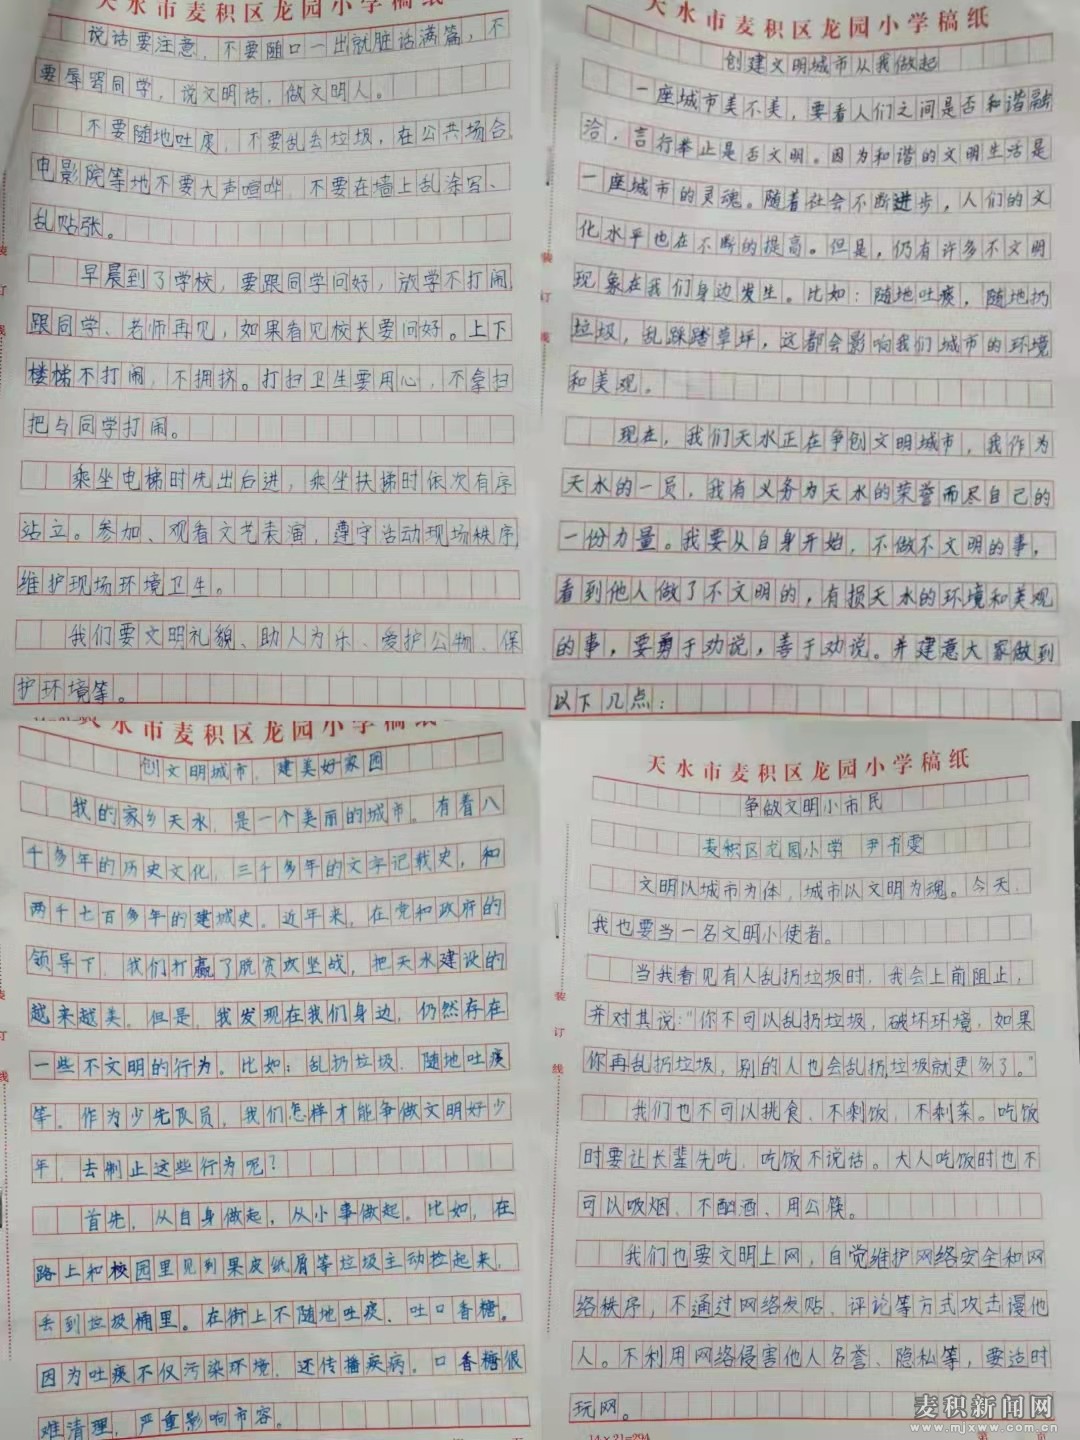 天水市麦积区龙园小学稿纸
说话要注意，不要随口一出就脏话满篇，不
要辱骂同学，说文明话，做文明人。
不要随地吐痰，不要乱丢垃圾，在公共场合
电影院等地不要大声喧哗，不要在墙上乱涂写、
乱贴张。
早晨到了学校，要跟同学问好，放学不打闹
跟同学、老师再见，如果看见校长要问好。上下
楼梯不打闹，不拥挤。打扫卫生要用心，不拿扫
把与同学打闹。
乘坐电梯时先出后进，乘坐扶梯时依次有序
站立。参加、观看文艺表演，遵守活动现场秩序
维护现场环境卫生。
我们要文明礼貌、助人为乐、爱护公物、保
护环境等。
装
订
线
天水市麦积区龙园小学稿纸
创建文明城市从我做起
一座城市美不美，要看人们之间是否和谐融
洽，言行举止是否文明。因为和谐的文明生活是
一座城市的灵魂。随着社会不断进步，人们的文
化水平也在不断的提高。但是，仍有许多不文明
现象在我们身边发生。比如：随地吐痰，随地扔
垃圾，乱踩踏草坪，这都会影响我们城市的环境
和美观。
现在，我们天水正在争创文明城市，我作为
天水的一员，我有义务为天水的荣誉而尽自己的
一份力量。我要从自身开始，不做不文明的事，
看到他人做了不文明的，有损天水的环境和美观
的事，要勇于劝说，善于劝说。并建意大家做到
以下几点：
装
订
线
天水市麦积区龙园小学稿纸
创文明城市，建美好家园
我的家乡天水，是一个美丽的城市。有着八
千多年的历史文化，三千多年的文字记载史，和
两千七百多年的建城史。近年来，在党和政府的
领导下，我们打赢了脱贫攻坚战，把天水建设的
越来越美。但是，我发现在我们身边，仍然存在
一些不文明的行为。比如：乱扔垃圾、随地吐痰
等。作为少先队员，我们怎样才能争做文明好少
年，去制止这些行为呢？
首先，从自身做起，从小事做起。比如，在
路上和校园里见到果皮纸屑等垃圾主动捡起来，
丢到垃圾桶里。在街上不随地吐痰、吐口香糖。
因为吐痰不仅污染环境，还传播疾病。口香糖很
难清理，严重影响市容。
装
订
线
天水市麦积区龙园小学稿纸
争做文明小市民
麦积区龙园小学 尹书雯
文明以城市为体，城市以文明为魂。今天，
我也要当一名文明小使者。
当我看见有人乱扔垃圾时，我会上前阻止，
并对其说：“你不可以乱扔垃圾，破坏环境，如果
你再乱扔垃圾，别的人也会乱扔，垃圾就更多了。”
我们也不可以挑食、不剩饭，不剩菜。吃饭
时要让长辈先吃，吃饭不说话。大人吃饭时也不
可以吸烟、不酗酒、用公筷。
我们也要文明上网，自觉维护网络安全和网
络秩序，不通过网络发贴、评论等方式攻击谩他
人。不利用网络侵害他人名誉、隐私等，要适时
玩网。
装
订
线
14×21=294
麦积新闻网
www.mjxww.com